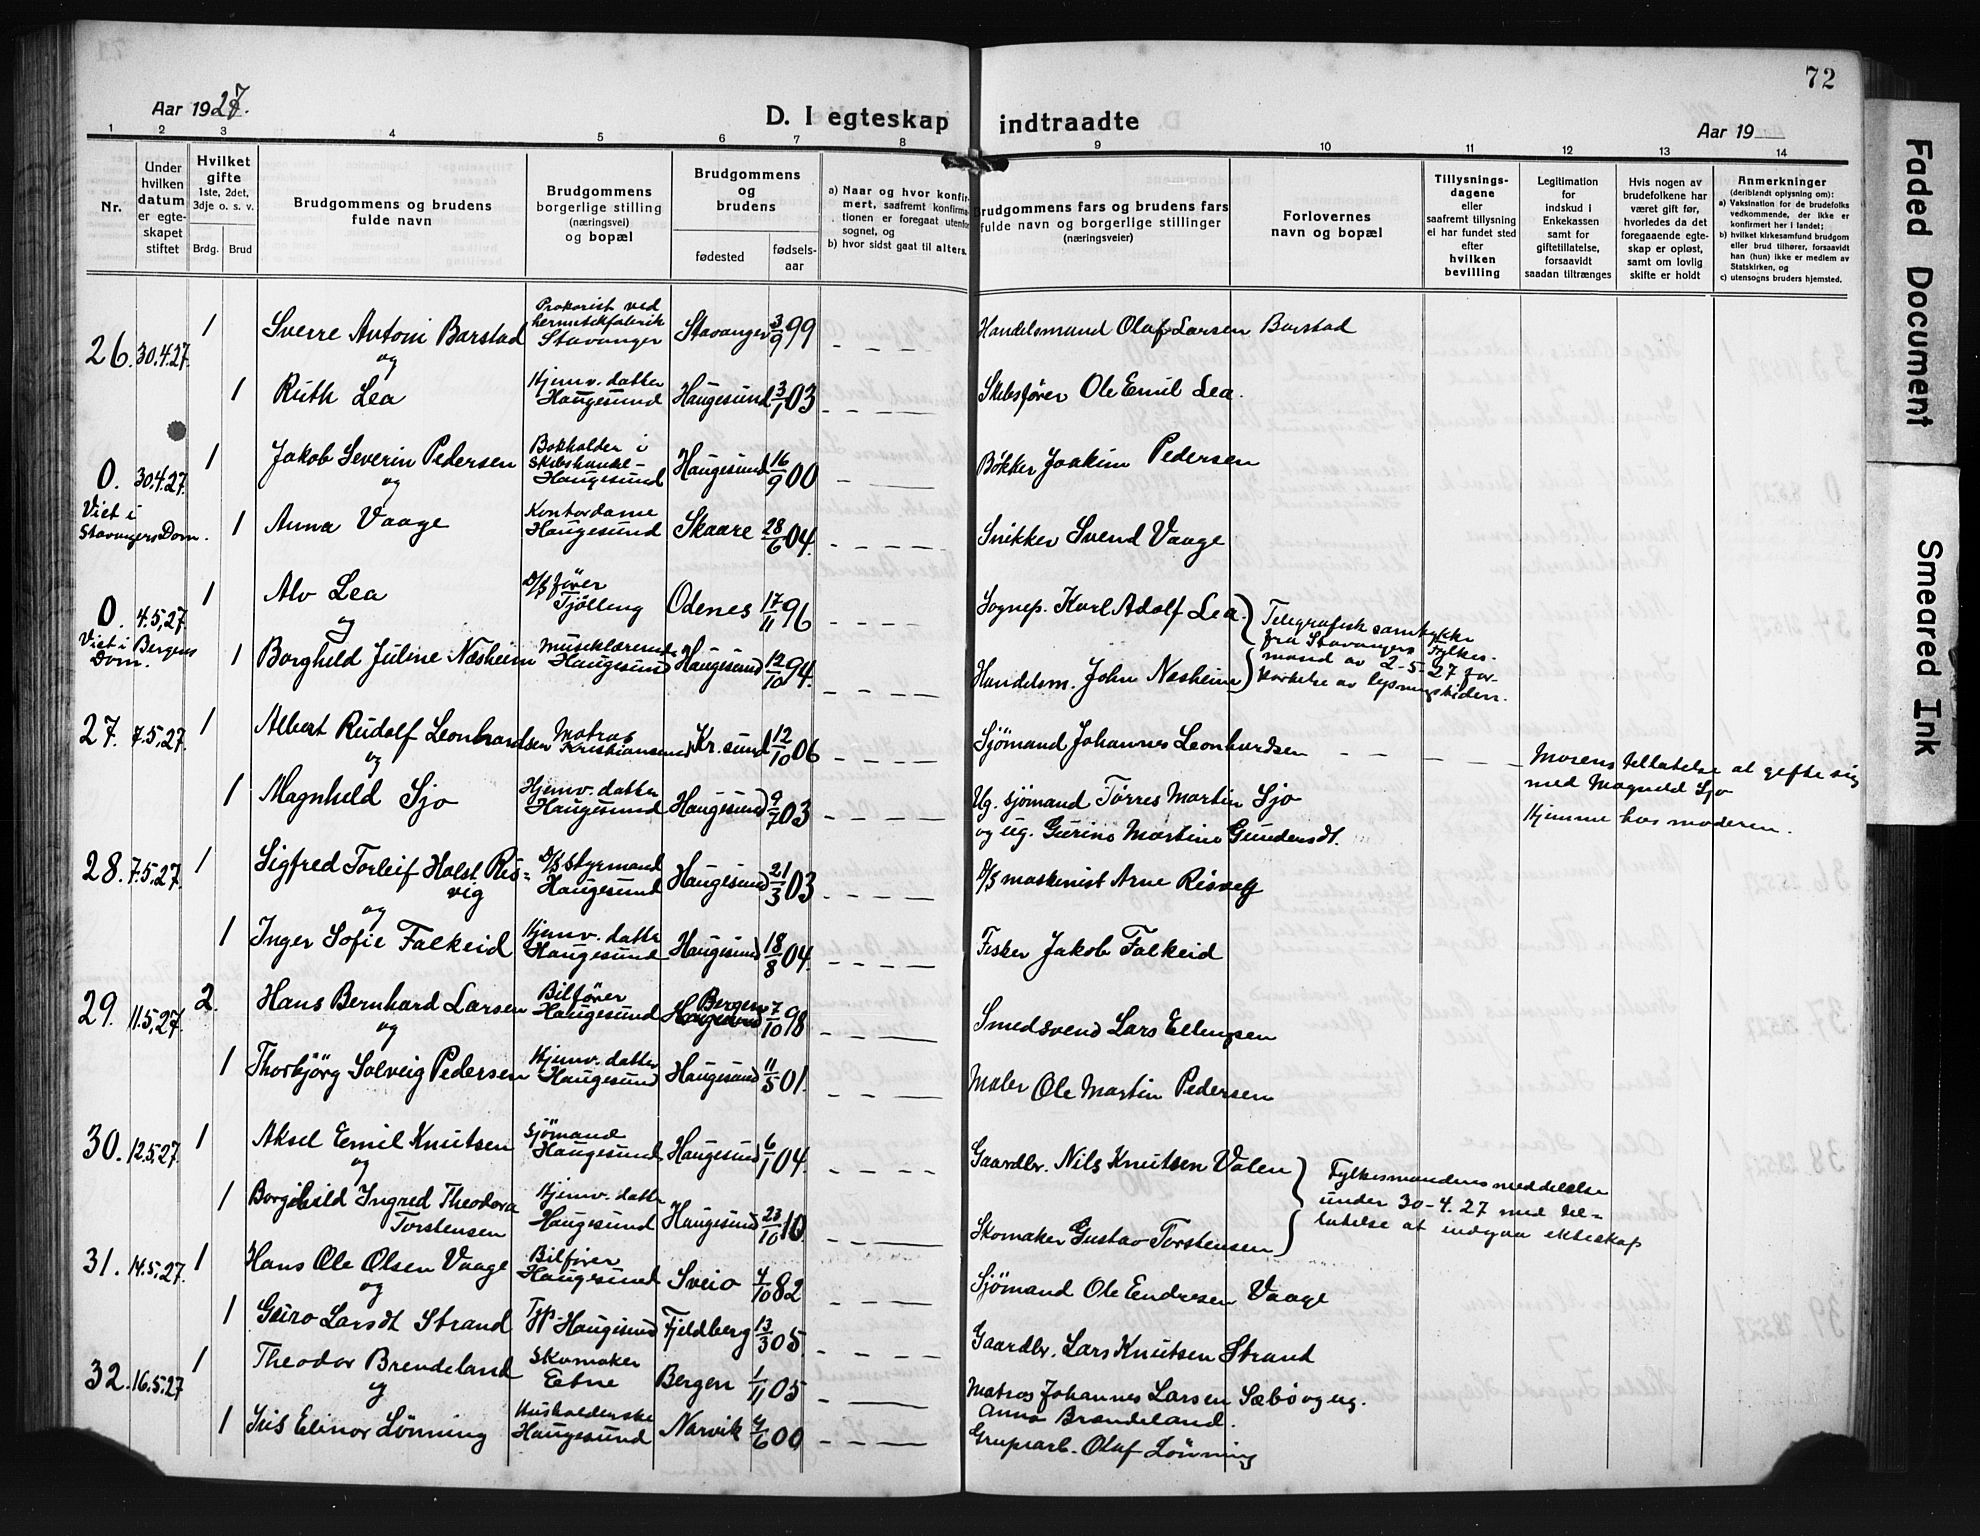 72
Aar 1927.
D. I egteskap indtraadte
Aar 19
1 2 3 4 5 6 7 8 9 10 11 12 13 14
Nr.
Under hvilken datum er egteskapet stiftet
Hvilket gifte 1ste, 2det, 3dje o. s. v.
Brdg. Brud
Brudgommens og brudens fulde navn
Brudgommens borgerlige stilling (næringsvei) og bopæl
Brudgommens og brudens
fødested fødsels-aar
a) Naar og hvor konfirmert, saafremt konfirmationen er foregaat utenfor sognet, og
b) hvor sidst gaat til alters.
Brudgommens fars og brudens fars fulde navn og borgerlige stillinger (næringsveier)
Forlovernes navn og bopæl
Tillysningsdagene eller saafremt tillysning ei har fundet sted efter hvilken bevilling
Legitimation for indskud i Enkekassen samt for giftetillatelse, forsaavidt saadan tiltrænges
Hvis nogen av brudefolkene har været gift før, hvorledes da det foregaaende egteskap er opløst, samt om lovlig skifte er holdt
Anmerkninger (deriblandt oplysning om):
a) Vaksination for de brudefolks vedkommende, der ikke er konfirmert her i landet;
b) hvilket kirkesamfund brudgom eller brud tilhører, forsaavidt han (hun) ikke er medlem av Statskirken, og
c) utensogns bruders hjemsted.
26. 30.4.27. 1 Sverre Antoni Barstad Prokurist ved hermetikfabrik Stavanger Stavanger 3/9 99 Handelsmand Olaf Larsen Barstad
og
1 Ruth Lea Hjemv. datter Haugesund Haugesund 3/1 03 Skibsfører Ole Emil Lea.
0. 30.4.27. 1 Jakob Severin Pedersen Bokholder i Skibshandel- Haugesund Haugesund 16/9 00 Bøkker Joakim Pedersen
og
Viet i Stavanger Dom. 1 Anna Vaage Kontordame Haugesund Skaare 28/6 04. Snikker Svend Vaage
0. 4.5.27 1 Alv Lea D/S fører Tjølling Odenes 17/11 96 Sognep. Karl Adolf Lea.
og
Viet i Bergens Dom. 1 Borghild Juline Næsheim Musiklærerinde Haugesund Haugesund 12/10 94. Handelsm. John Næsheim
Telegrafisk samtykke fra Stavangers Fylkesmand av 2-5-27 forkortelse av lysningstiden.
27. 7.5.27. 1 Albert Rudolf Leonhardsen Matros Kristiansund Kr.sund 12/10 06 Sjømand Johannes Leonhardsen
og
Morens tillatelse at gifte sig med Magnhild Sjo
1 Magnhild Sjo Hjemv. datter Haugesund Haugesund 9/7 03 Ug. sjømand Tørres Martin Sjo
og ug. Gurine Martine Gundersdt.
Hjemme hos moderen.
28. 7.5.27. 1 Sigfred Torleif Holst Risvig D/S styrmand Haugesund Haugesund 21/3 03 D/S maskinist Arne Risvig
og
1 Inger Sofie Falkeid Hjemv. datter Haugesund Haugesund 18/8 04. Fisker Jakob Falkeid
29. 11.5.27. 2. Hans Bernhard Larsen Bilfører Haugesund Bergen 7/10 98 Smedsvend Lars Ellingsen
og
1 Thorbjörg Solveig Pedersen Hjemv. datter Haugesund Haugesund 11/5 01. Maler Ole Martin Pedersen
30. 12.5.27. 1 Aksel Emil Knutsen Sjømand Haugesund Haugesund 6/1 04. Gaardbr. Nils Knutsen Valen
og
1 Borghild Ingred Theodora Torstensen Hjemv. datter Haugesund Haugesund 23/10 10. Skomaker Gustav Torstensen
Fylkesmandens meddelelse under 30-4.27 med tillatelse at indgaa ekteskap
31. 14.5.27. 1 Hans Ole Olsen Vaage Bilfører Haugesund Sveio 4/10 82 Sjømand Ole Endresen Vaage
og
1 Guro Larsdt Strand Haugesund Fjeldberg 13/3 05 Gaardbr. Lars Knutsen Strand
32. 16.5.27 1 Theodor Brendeland Skomaker Etne Bergen 1/11 05 Matros Johannes Larsen Sæbø og ug. Anna Brandeland.
og
1 Iris Elinor Lønning Husholderske Haugesund Narvik 4/6 00 Grupearb. Olaf Lønning
Faded Document
Smeared Ink